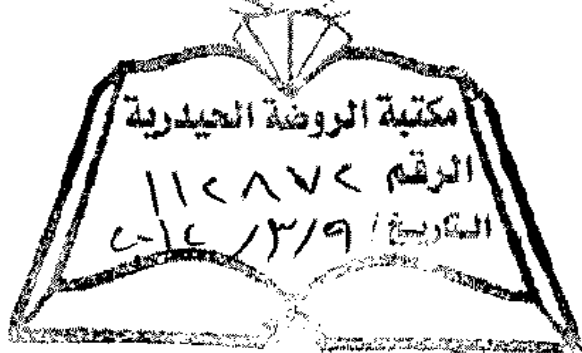 مكتبة الروضة الحيدرية
الرقم ١١٢٨٧٢
التاريخ / ٩/٣/ ٢٠١٢